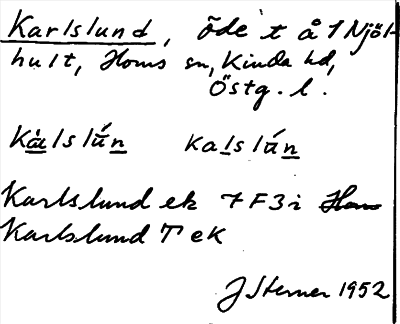 Karlslund, öde t å 1 Njöl-
hult, Horns sn, Kinda hd,
Östg. l.
Kàlslún kalslún
Karlslund ek 7F3i
Karlslund T ek
J Sterner 1952